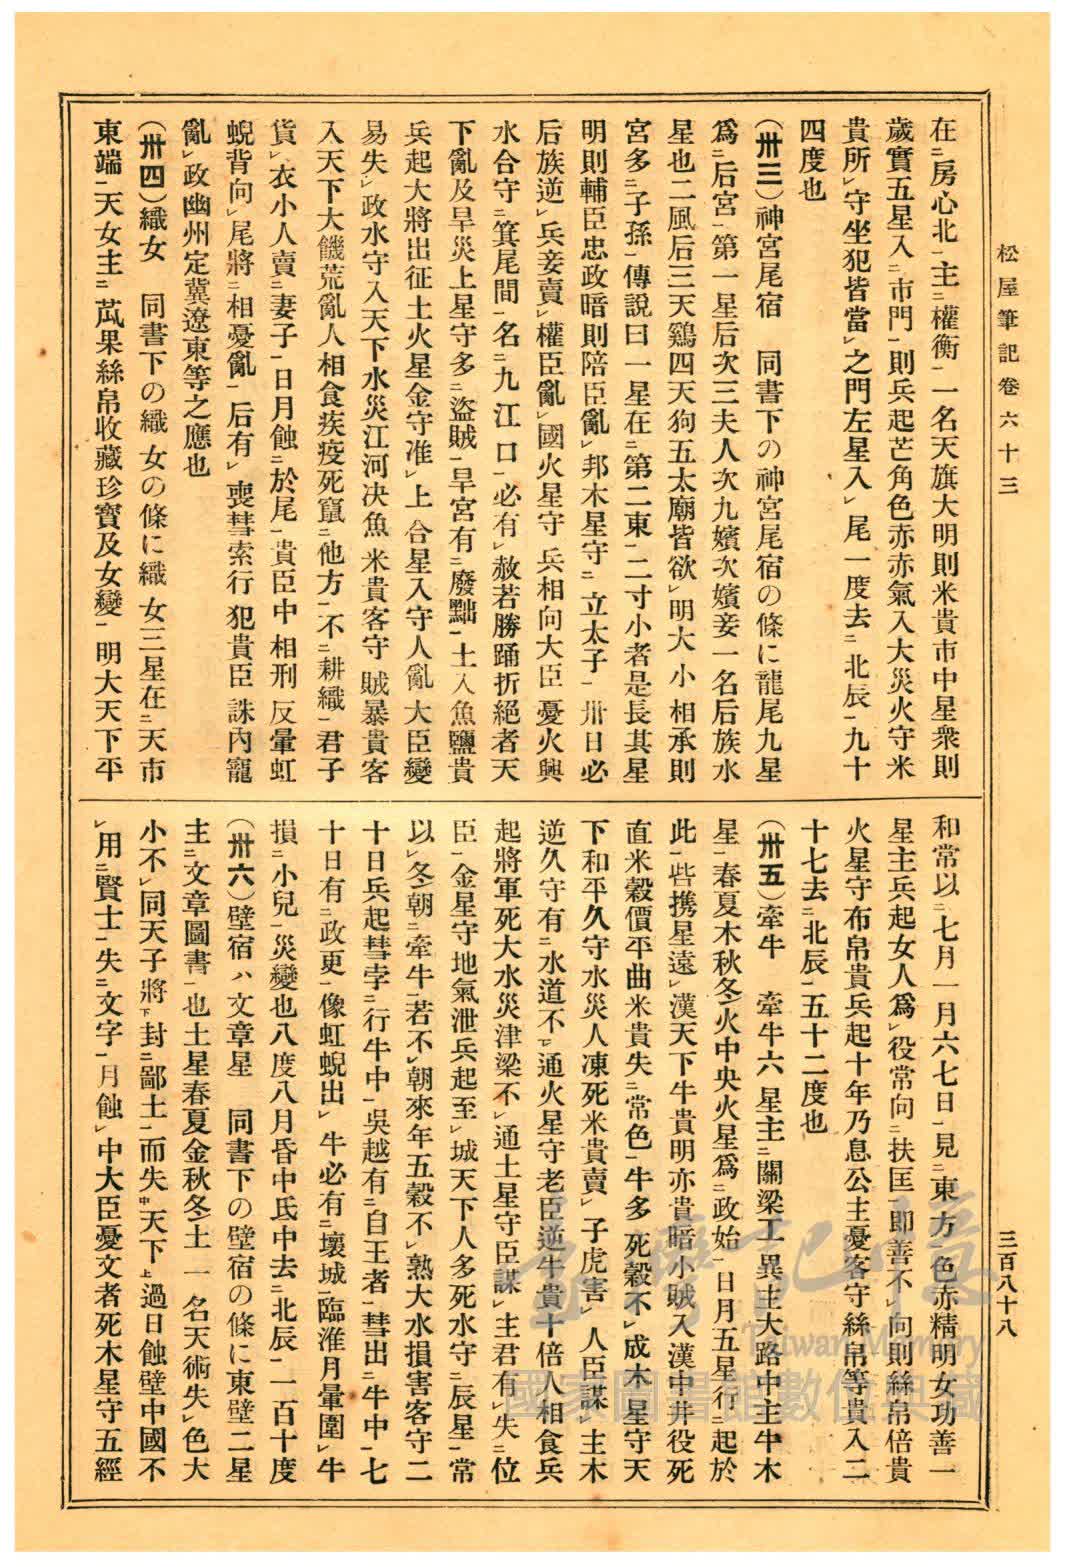 松屋筆記卷六十三
三百八十八
在㆓房心北㆒主㆓權衡㆒一名天旗大明則米貴市中星衆則
歲實五星入㆓市門㆒則兵起芒角色赤赤氣入大災火守米
貴所㆑守坐犯皆當㆑之門左星入㆑尾一度去㆓北辰㆒九十
四度也
(卅三)神宮尾宿　同書下の神宮尾宿の條に龍尾九星
爲㆓后宮㆒第一星后次三夫人次九嬪次嬪妾一名后族水
星也二風后三天鷄四天狗五太廟皆欲㆑明大小相承則
宮多㆓子孫㆒傳説曰一星在㆓第二東㆒二寸小者是長其星
明則輔臣忠政暗則陪臣亂㆑邦木星守㆓立太子㆒卅日必
后族逆㆑兵妾賣㆑權臣亂㆑國火星守兵相向大臣憂火興
水合守㆓箕尾間㆒名㆓九江口㆒必有㆑赦若勝踊折絕者天
下亂及旱災上星守多㆓盜賊㆒旱宮有㆓廢黜㆒土入魚鹽貴
兵起大將出征土火星金守准㆑上合星入守人亂大臣變
易失㆑政水守入天下水災江河決魚米貴客守賊暴貴客
入天下大饑荒亂人相食疾疫死竄㆓他方㆒不㆓耕織㆒君子
貨㆑衣小人賣㆓妻子㆒日月蝕㆓於尾㆒貴臣中相刑反暈虹
蜺背向㆑尾將㆓相憂亂㆒后有㆑喪彗索行犯貴臣誅內寵
亂㆑政幽州定冀遼東等之應也
(卅四)織女　同書下の織女の條に織女三星在㆓天市
東端㆒天女主㆓苽果絲帛收藏珍寶及女變㆒明大天下平
和常以㆓七月一月六七日㆒見㆓東方㆒色赤精明女功善一
星主兵起女人爲㆑役常向㆓扶匡㆒即善不㆑向則絲帛倍貴
火星守布帛貴兵起十年乃息公主憂客守絲帛等貴入二
十七去㆓北辰㆒五十二度也
(卅五)牽牛　牽牛六星主㆓關梁工㆒異主大路中主牛木
星㆒春夏木秋冬火中央火星爲㆓政始㆒日月五星行㆓起於
此㆒呰携星遠㆑漢天下牛貴明亦貴暗小賊入漢中井役死
直米穀價平曲米貴失㆓常色㆒牛多死穀不㆑成木星守天
下和平久守水災人凍死米貴賣㆑子虎害㆑人臣謀㆑主木
逆久守有㆓水道不㆒㆑通火星守老臣逆牛貴十倍人相食兵
起將軍死大水災津梁不㆑通土星守臣謀㆑主君有㆑失㆓位
臣㆒金星守地氣泄兵起至㆑城天下人多死水守㆓辰星㆒常
以㆑冬朝㆓牽牛㆒若不㆑朝來年五穀不㆑熟大水損害客守二
十日兵起彗孛㆓行牛中㆒吳越有㆓自王者㆒彗出㆓牛中㆒七
十日有㆓政更㆒像虹蜺出㆑牛必有㆓壞城㆒臨淮月暈圍㆑牛
損㆓小兒㆒災變也八度八月昏中氐中去㆓北辰㆒一百十度
(卅六)壁宿ハ文章星　同書下の壁宿の條に東壁二星
主㆓文章圖書㆒也土星春夏金秋冬土一名天術失㆑色大
小不㆑同天子將㆘封㆓鄙土㆒而失㆗天下㆖過日蝕壁中國不
㆑用㆓賢士㆒失㆓文字㆒月蝕㆑中大臣憂文者死木星守五經